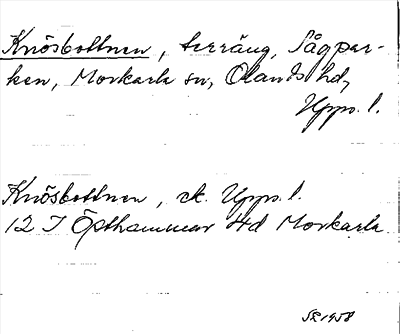 Knösbottnen, terräng, Sågpar-
ken, Morkarla sn, Olands hd,
Upps. l.
Knösbottnen, ek. Upps. l.
12 I Östhammar 4d Morkarla
SR 1958